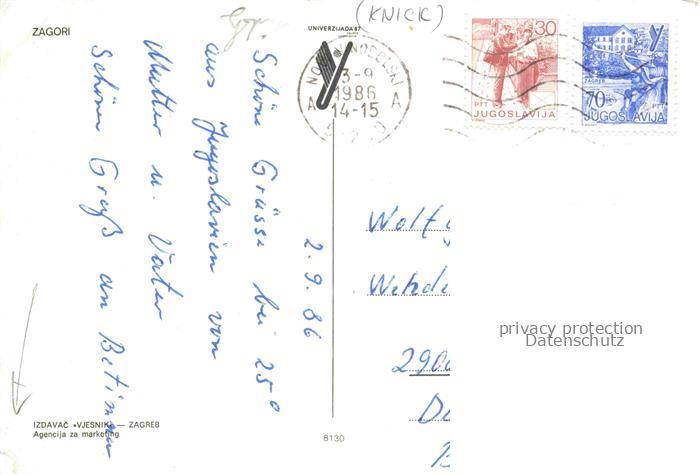 ZAGORI
(KNICK)
UNIVERZIJADA'87
3-9
1986
14-15
A A
30
PTT
JUGOSLAVIJA
ZAGREB
70
PTT
JUGOSLAVIJA
2.9.86
Schöne Grüsse bei 25°
aus Jugoslavien von
Mutter u. Vater
Schönen Gruß an Betinna
Wolf
Wehde
2900
privacy protection
Datenschutz
IZDAVAČ »VJESNIK« — ZAGREB
Agencija za marketing
8130